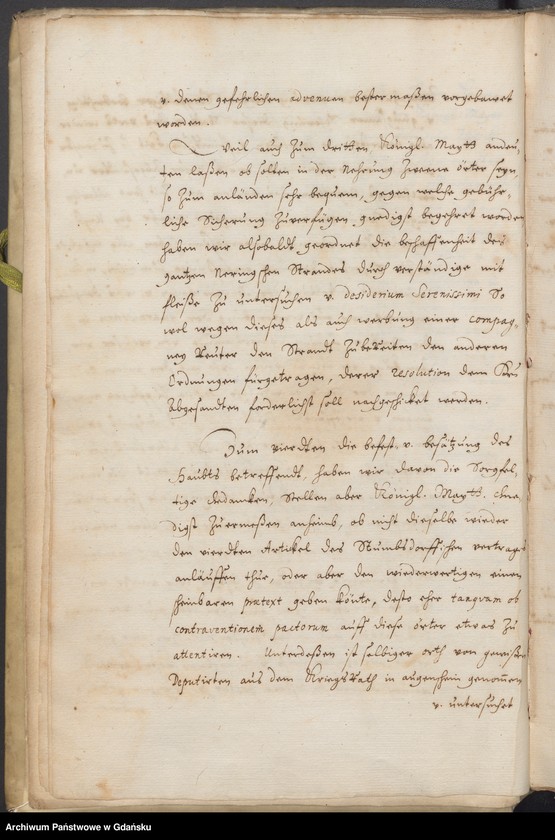 v. denen gefehrlichen advenuen bester maßen vorgebawet
worden.
Weil auch zum dritten Königl. Maytt andeu-
ten laßen ob solten in der Nehrung zweene örter seyn,
so zum anländen sehr bequem, gegen welche gebühr-
liche Sicherung zuverfügen gnedigst begehret worden
haben wir alsobaldt geordnet die beschaffenheit des
gantzen Neringschen Strandes durch verständige mit
fleiße zu untersuchen v. desiderium Serenissimi so
wol wegen dieses als auch werbung einer compag-
ney Reuter den Strandt zubereiten den anderen
Ordnungen fürgetragen, derer resolution dem
Abgesandten forderlichst soll nachgeschicket werden.
Zum vierdten die befest. v. besatzung des
Haubts betreffendt, haben wir davon die Sorgfel-
tige gedancken, stellen aber Königl. Maytt. gnä-
digst zuermeßen anheimb, ob nicht dieselbe wieder
den vierdten Artickel des Stumbsdorffischen vertrags
anläuffen thue, oder aber den wiederwertigen einen
scheinbaren prætext geben könte, desto eher tanquam ob
contraventionem pactorum auff diese örter etwas zu
attentiren. Unterdeßen ist selbiger orth von gewißen
Deputirten aus dem KriegsRath in augenschein genom̃en
v. untersuchet
Archiwum Państwowe w Gdańsku